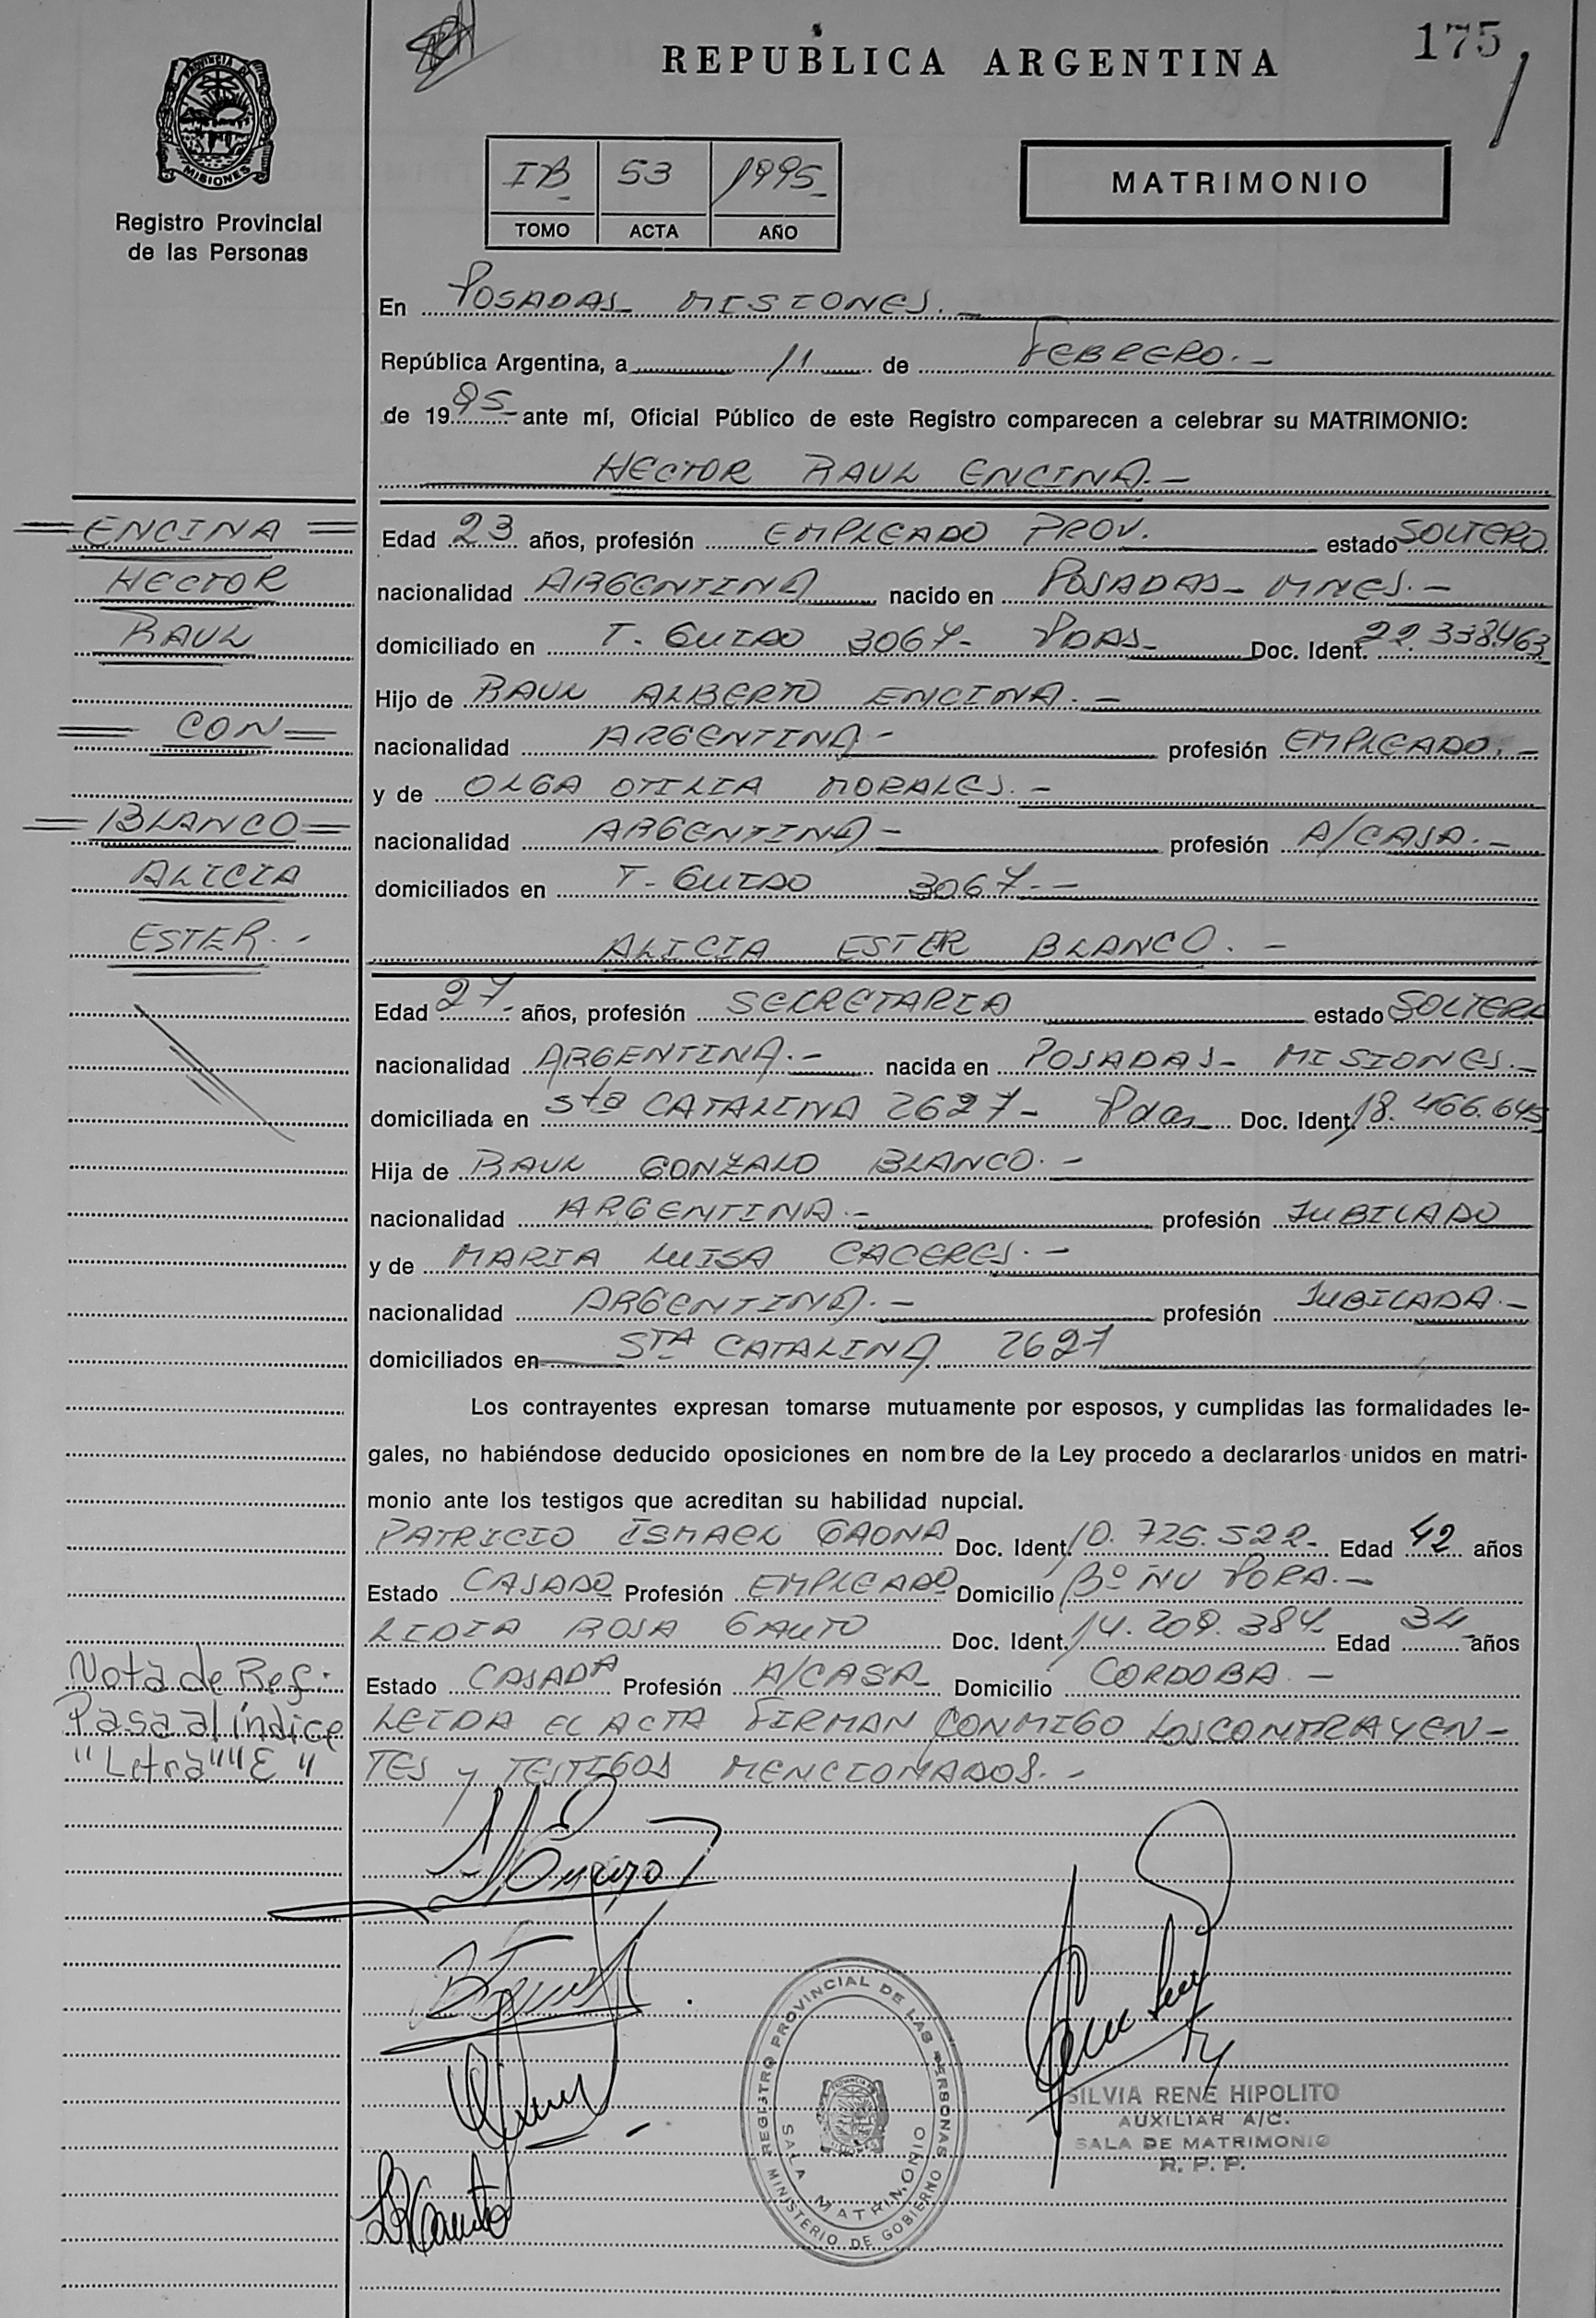 175
REPUBLICA ARGENTINA
PROVINCIA DE
MISIONES
Registro Provincial
de las Personas
IB 53 1995
TOMO ACTA AÑO
MATRIMONIO
En POSADAS MISIONES.-
República Argentina, a 11 de FEBRERO.-
de 1995 ante mí, Oficial Público de este Registro comparecen a celebrar su MATRIMONIO:
HECTOR RAUL ENCINA.-
ENCINA
HECTOR
RAUL
CON
BLANCO
ALICIA
ESTER.-
Edad 23 años, profesión EMPLEADO PROV. estado SOLTERO
nacionalidad ARGENTINA nacido en POSADAS- MNES.-
domiciliado en T. GUIDO 3067- PDAS- Doc. Ident. 22.338.463
Hijo de RAUL ALBERTO ENCINA.-
nacionalidad ARGENTINA- profesión EMPLEADO.-
y de OLGA OTILIA MORALES.-
nacionalidad ARGENTINA- profesión A/CASA.-
domiciliados en T. GUIDO 3067.-
ALICIA ESTER BLANCO.-
Edad 27- años, profesión SECRETARIA estado SOLTERA
nacionalidad ARGENTINA.- nacida en POSADAS- MISIONES.-
domiciliada en Sta CATALINA 2627- Pdas Doc. Ident. 18.466.645
Hija de RAUL GONZALO BLANCO.-
nacionalidad ARGENTINA.- profesión JUBILADO
y de MARIA LUISA CACERES.-
nacionalidad ARGENTINA.- profesión JUBILADA.-
domiciliados en STA CATALINA 2627
Los contrayentes expresan tomarse mutuamente por esposos, y cumplidas las formalidades le-
gales, no habiéndose deducido oposiciones en nombre de la Ley procedo a declararlos unidos en matri-
monio ante los testigos que acreditan su habilidad nupcial.
PATRICIO ISMAEL GAONA Doc. Ident. 10.725.522- Edad 42 años
Estado CASADO Profesión EMPLEADO Domicilio Bº ÑU PORA.-
LIDIA ROSA GAUTO Doc. Ident. 14.209.384- Edad 34 años
Estado CASADA Profesión A/CASA Domicilio CORDOBA.-
LEIDA EL ACTA FIRMAN CONMIGO LOS CONTRAYEN-
TES y TESTIGOS MENCIONADOS.-
Nota de Ref:
Pasa al índice
"Letra" "E"
REGISTRO PROVINCIAL DE LAS PERSONAS
MINISTERIO DE GOBIERNO
SALA MATRIMONIO
SILVIA RENE HIPOLITO
AUXILIAR A/C.
SALA DE MATRIMONIO
R. P. P.